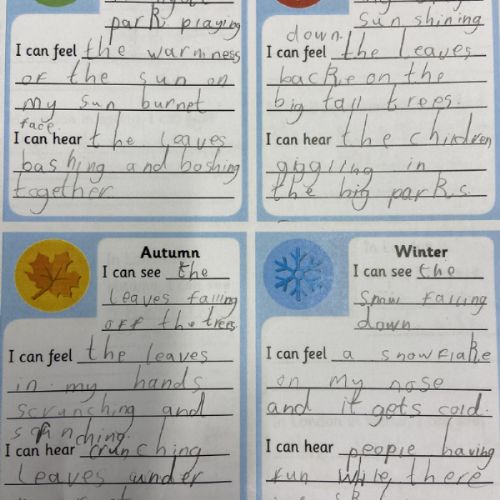 park playing
I can feel the warmness
of the sun on
my sun burnet
face.
I can hear the leaves
bashing and boshing
together
sun shining
down.
I can feel the leaves
backe on the
big tall trees.
I can hear the children
giggling in
the big parks.
Autumn
I can see the
leaves falling
off the trees
I can feel the leaves
in my hands
scrunching and
I can hear crunching
leaves under
Winter
I can see the
snow falling
down
I can feel a snowflake
on my nose
and it gets cold.
I can hear people having
fun while there